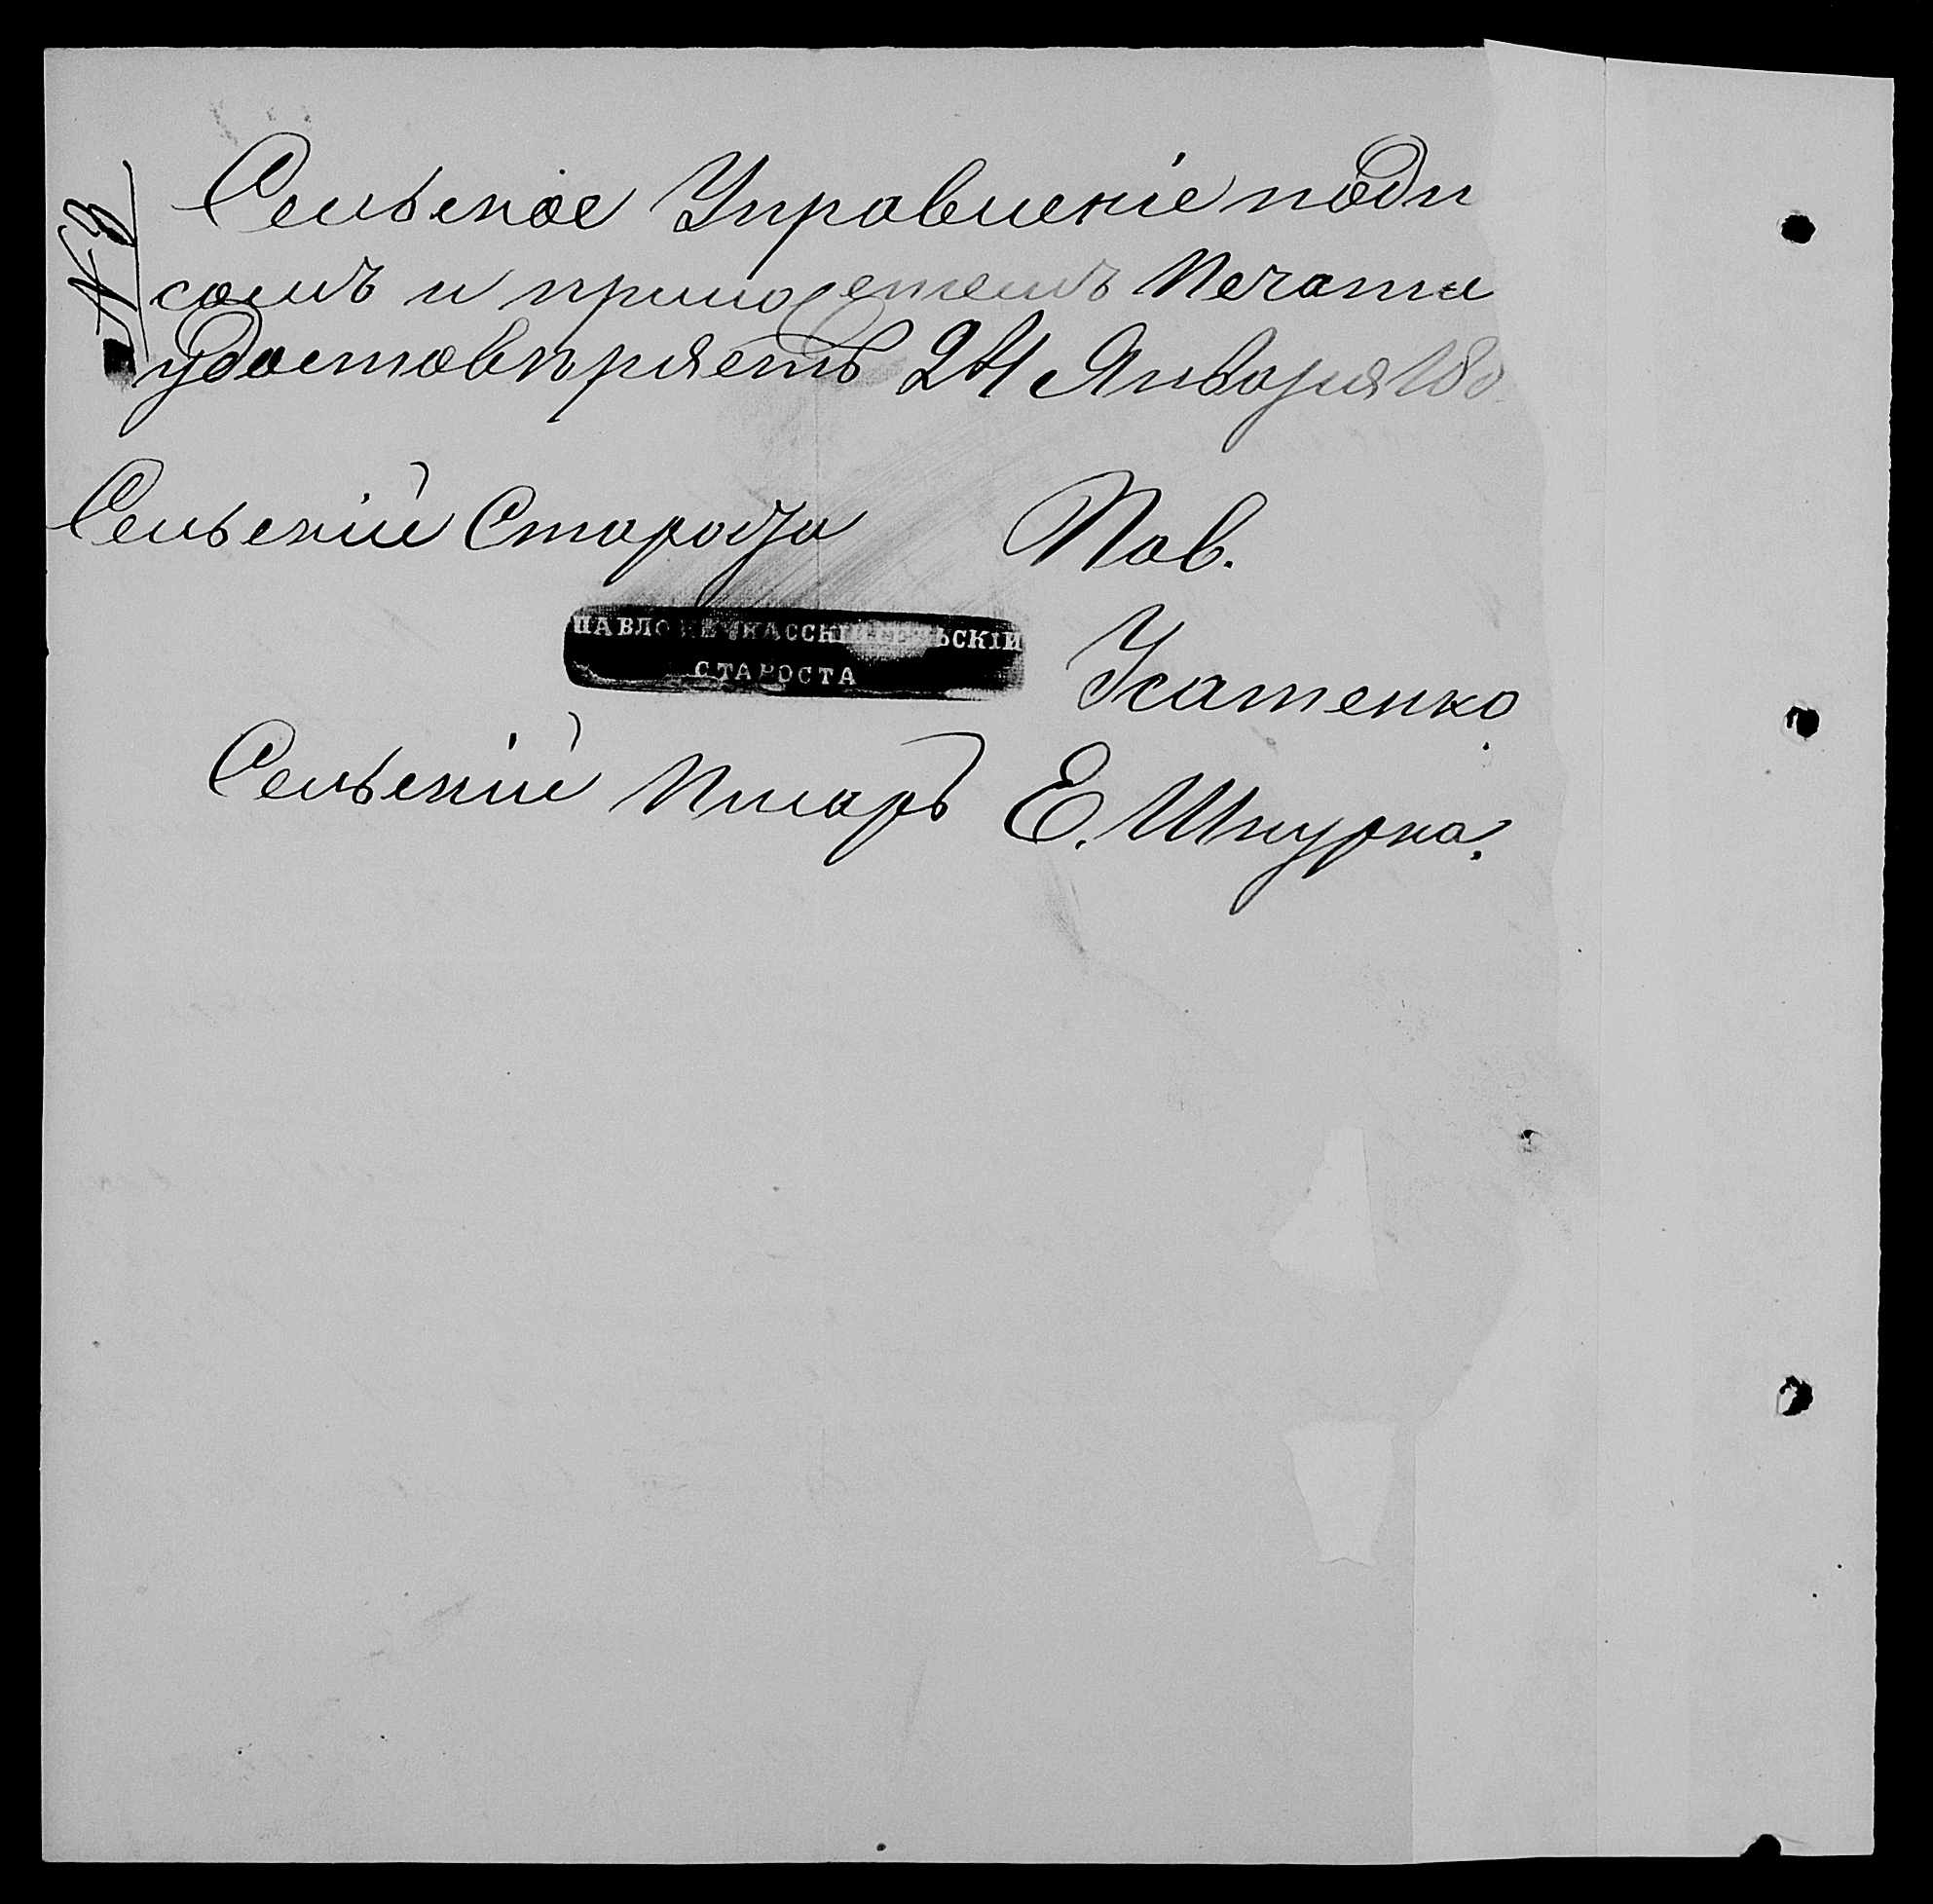 № 3
Сельское Управленіе подпи
сомъ и приложетемъ Печати
удостовѣряетъ 24 Января 18
Сельскій Староста Пав.
ПАВЛОКИЧКАССКІЙ СЕЛЬСКІЙ
СТАРОСТА
Усатенко
Сельскій Писарь Е. Шкурка.